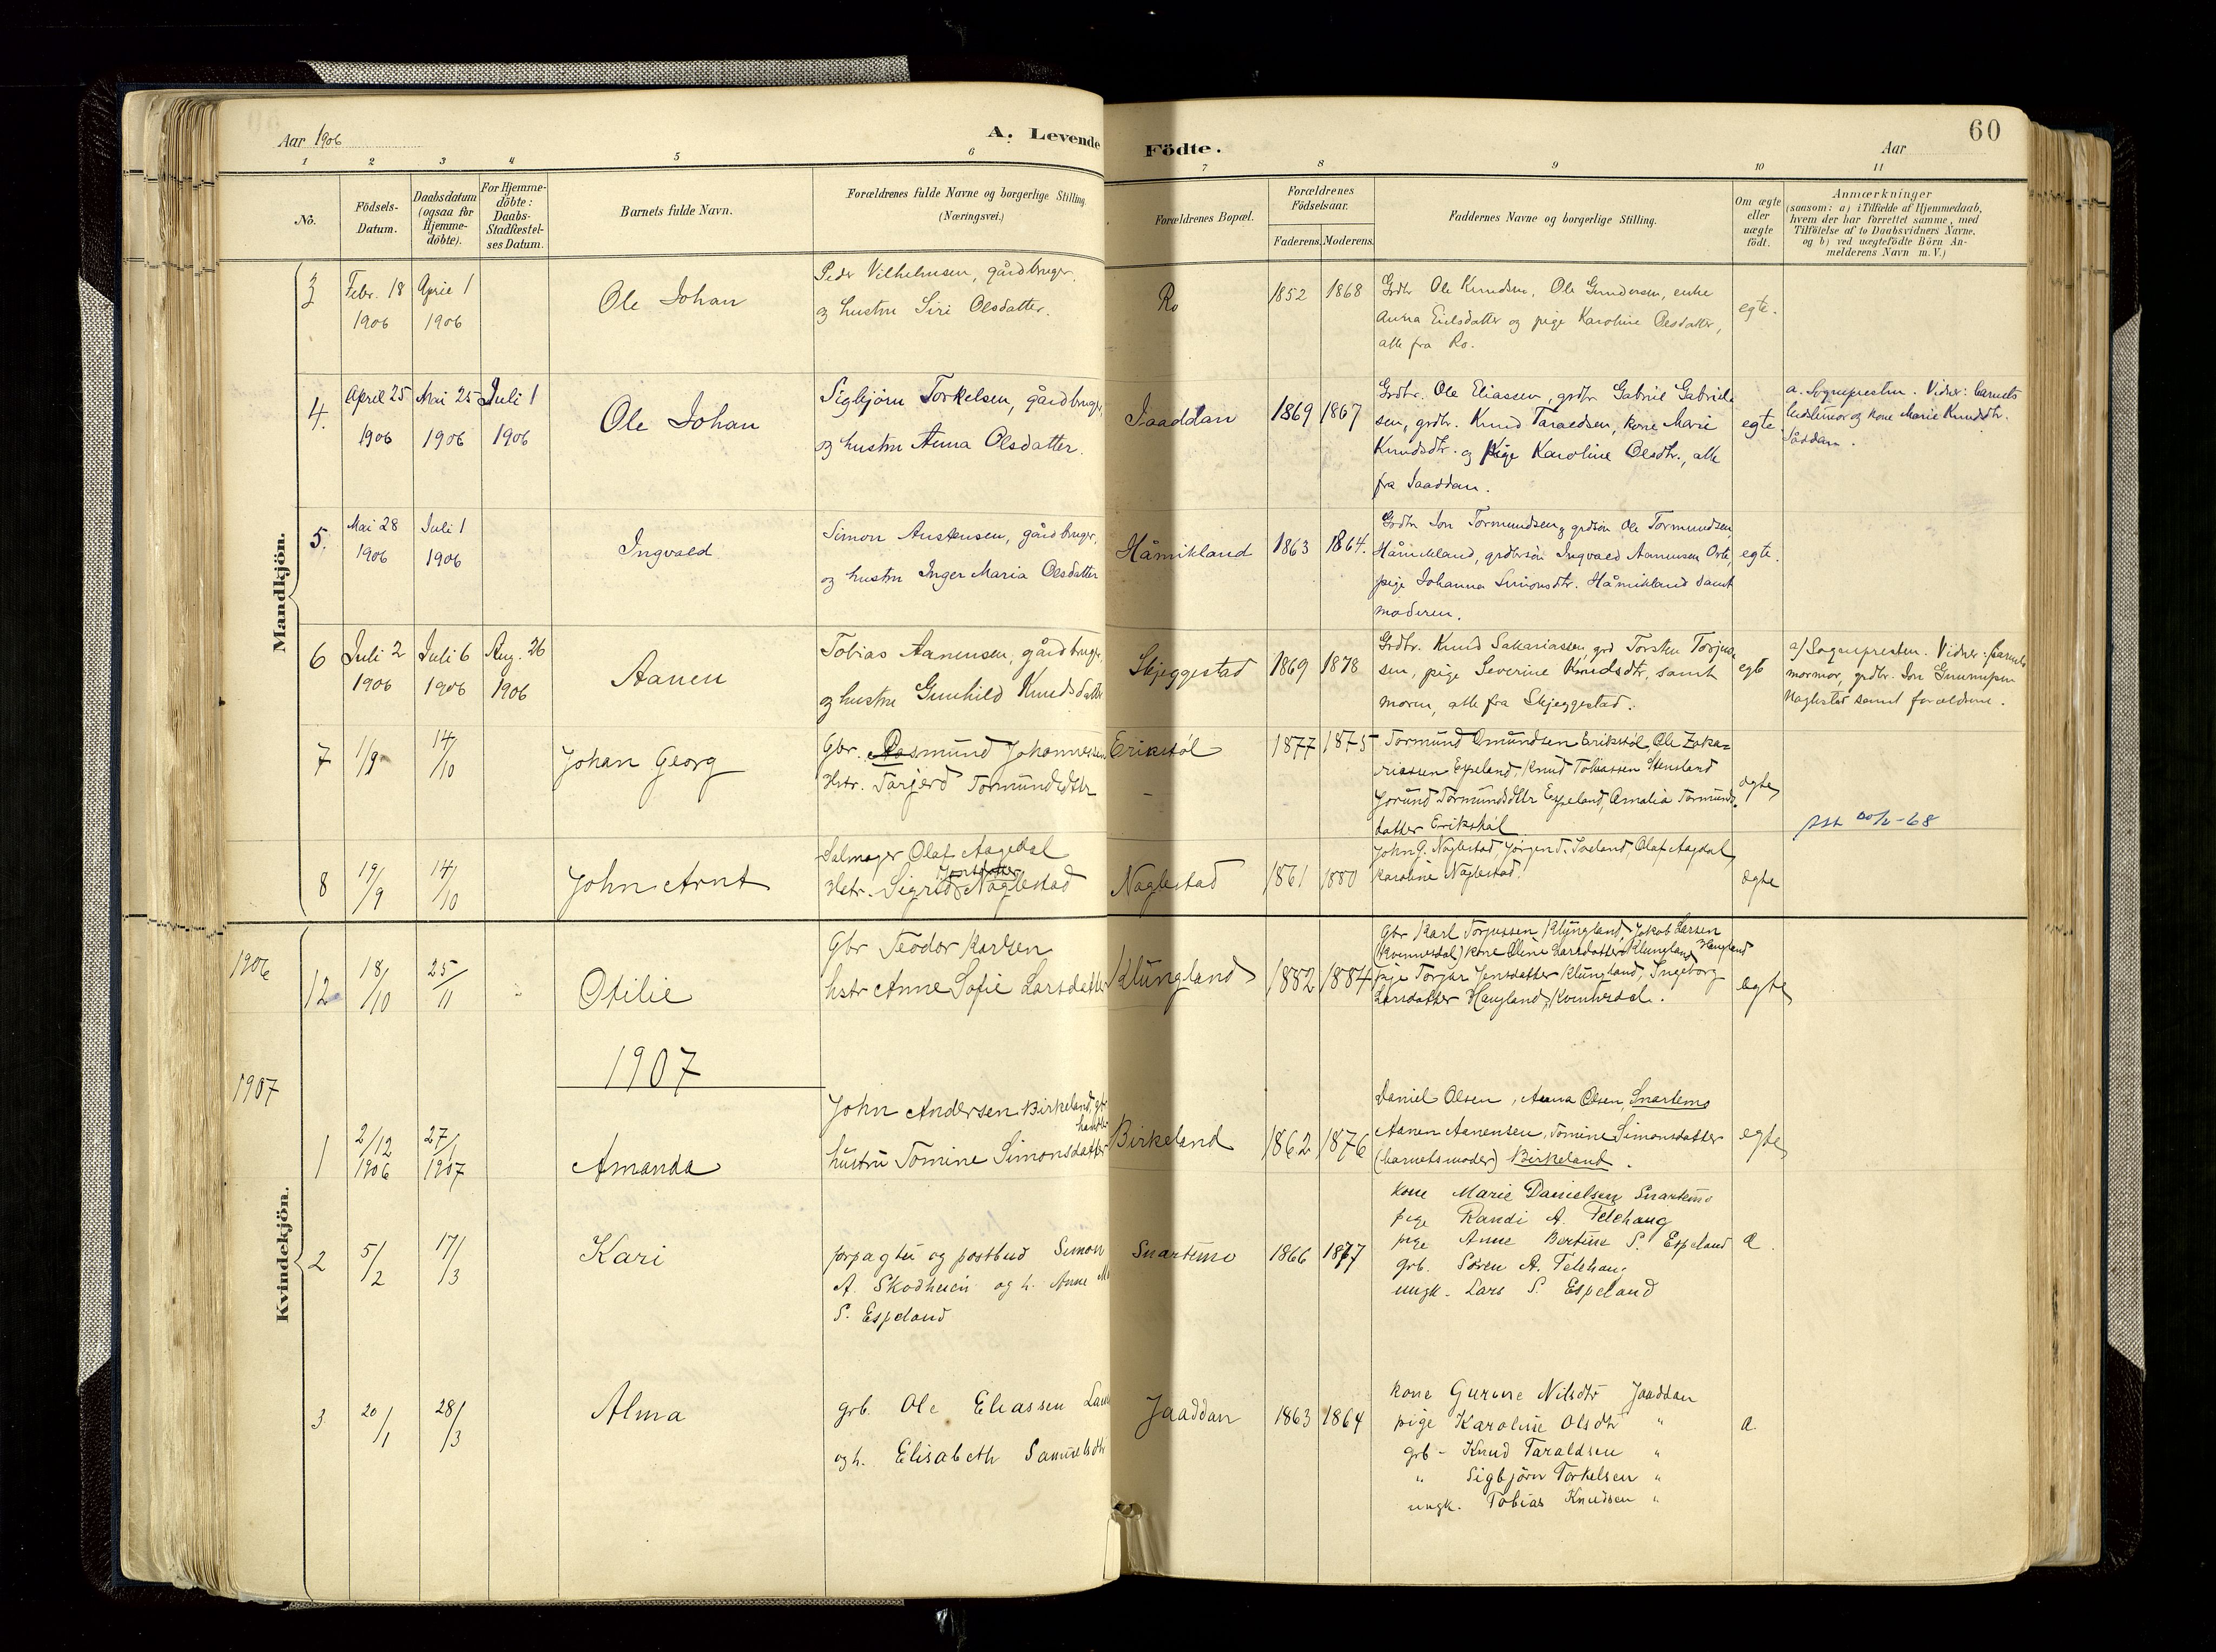 60
Aar 1906
A. Levende
Födte.
Aar
1 2 3 4 5 6 7 8 9 10 11
No.
Födsels-
Datum.
Daabsdatum
(ogsaa for
Hjemme-
döbte).
For Hjemme-
döbte:
Daabs-
Stadfæstel-
ses Datum.
Barnets fulde Navn.
Forældrenes fulde Navne og borgerlige Stilling.
(Næringsvei.)
Forældrenes Bopæl.
Forældrenes
Födselsaar.
Faderens. Moderens.
Faddernes Navne og borgerlige Stilling.
Om ægte
eller
uægte
födt.
Anmærkninger
(saasom: a) i Tilfælde af Hjemmedaab,
hvem der har forrettet samme, med
Tilföielse af to Daabsvidners Navne,
og b) ved uægtefödte Börn An-
melderens Navn m. V.)
Mandkjön.
3
Febr. 18
1906
April 1
1906
Ole Johan
Peder Vilhelmsen, gårdbruger
og hustru Siri Olsdatter.
Ro
1852 1868
Grdbr Ole Knudsen, Ole Gundersen, enke
Anna Eielsdatter og pige Karoline Olsdatter,
alle fra Ro.
egte.
4.
April 25
1906
Mai 25
1906
Juli 1
1906
Ole Johan
Sigbjörn Torkelsen, gårdbruger,
og hustru Anna Olsdatter.
Jaaddan
1869 1867
Grdbr. Ole Eliassen, grdbr Gabriel Gabriel
sen, grdbr. Knud Taraldsen, kone Marie
Knudsdtr. og pige Karoline Olsdtr., alle
fra Jaaddan.
egte
a. Sognepresten. Vidner: barnets
bedstemor og kone Marie Knudsdtr.
Jåddan.
5.
Mai 28
1906
Juli 1
1906
Ingvald
Simon Austensen, gårdbruger,
og hustru Inger Maria Olsdatter
Håmikland
1863 1864.
Grdbr Jon Tormundsen, grdsön Ole Tormundsen,
Håmikland, grdbrsön Ingvald Aanensen
pige Johanna Simonsdtr. Håmikland samt
moderen.
egte.
6
Juli 2
1906
Juli 6
1906
Aug. 26
1906
Aanen
Tobias Aanensen, gårdbruger,
og hustru Gunhild Knudsdatter
Skjeggestad
1869 1878
Grdbr. Knud Sakariassen, grd Torsten Torjus
sen, pige Severine Knudsdtr, samt
moren, alle fra Skjeggestad.
egte
a/ Sognepresten. Vidner: barnets
mormor, grdbr. Jon
Naglestad samt forældrene.
7
1/9
14/10
Johan Georg
Gbr. Aasmund Johannessen
Hstr. Tarjerd Tormundsdttr
Eriksköl
1877 1875
Tormund Omundsen Eriksköl, Ole Zaka=
riassen Espeland, Knud Tobiassen Stensland
Jorund Tormundsdttr Espeland, Amalia Tormunds
datter Eriksköl
egte
8
19/9
14/10
John Arnt
Salmager Olaf Aagedal
Jonsdatter
Hstr. Sigrid Naglestad
Naglestad
1861 1880
John G. Naglestad, Jörgen d. Sveland, Olaf Aagdal,
Karoline Naglestad.
egte
Kvindekjön.
1906
12
18/10
25/11
Otilie
Gbr Teodor Karlsen
hstr Anne Sofie Larsdatter
Klungland
1882 1884
Gbr Karl Torjussen Klungland, Jakob Larsen
Haugland
(Kvinnesdal) kone Oline Larsdatter Klungland
pige Torjær Jensdatter Klungland, Ingeborg
Larsdatter Haugland, Kvinnesdal.
egte
1907
1907
1
2/12
1906
27/1
1907
Amanda
John Andersen Birkeland, gbr
handler
hustru Tomine Simonsdatter
Birkeland
1862 1876
Daniel Olsen, Anna Olsen, Snartemo
Aanen Aanensen, Tomine Simonsdatter
(barnets moder) Birkeland.
egte
2
5/2
17/3
Kari
forpagter og postbud Simon
A. Skodheien og h. Anne M
S. Espeland
Snartemo
1866 1877
kone Marie Danielsen Snartemo
pige Randi A. Telehaug
pige Anne Bertine S. Espeland
grb. Sören A. Telehaug
ungk. Lars S. Espeland
æ.
3
20/1
28/3
Alma
grb. Ole Eliassen
og h. Elisabeth Samuelsdtr
Jaaddan
1863 1864
kone Gurine Nilsdtr Jaaddan
pige Karoline Olsdtr "
grb - Knud Taraldsen "
" Sigbjörn Torkelsen "
ungk. Tobias Knudsen "
æ.